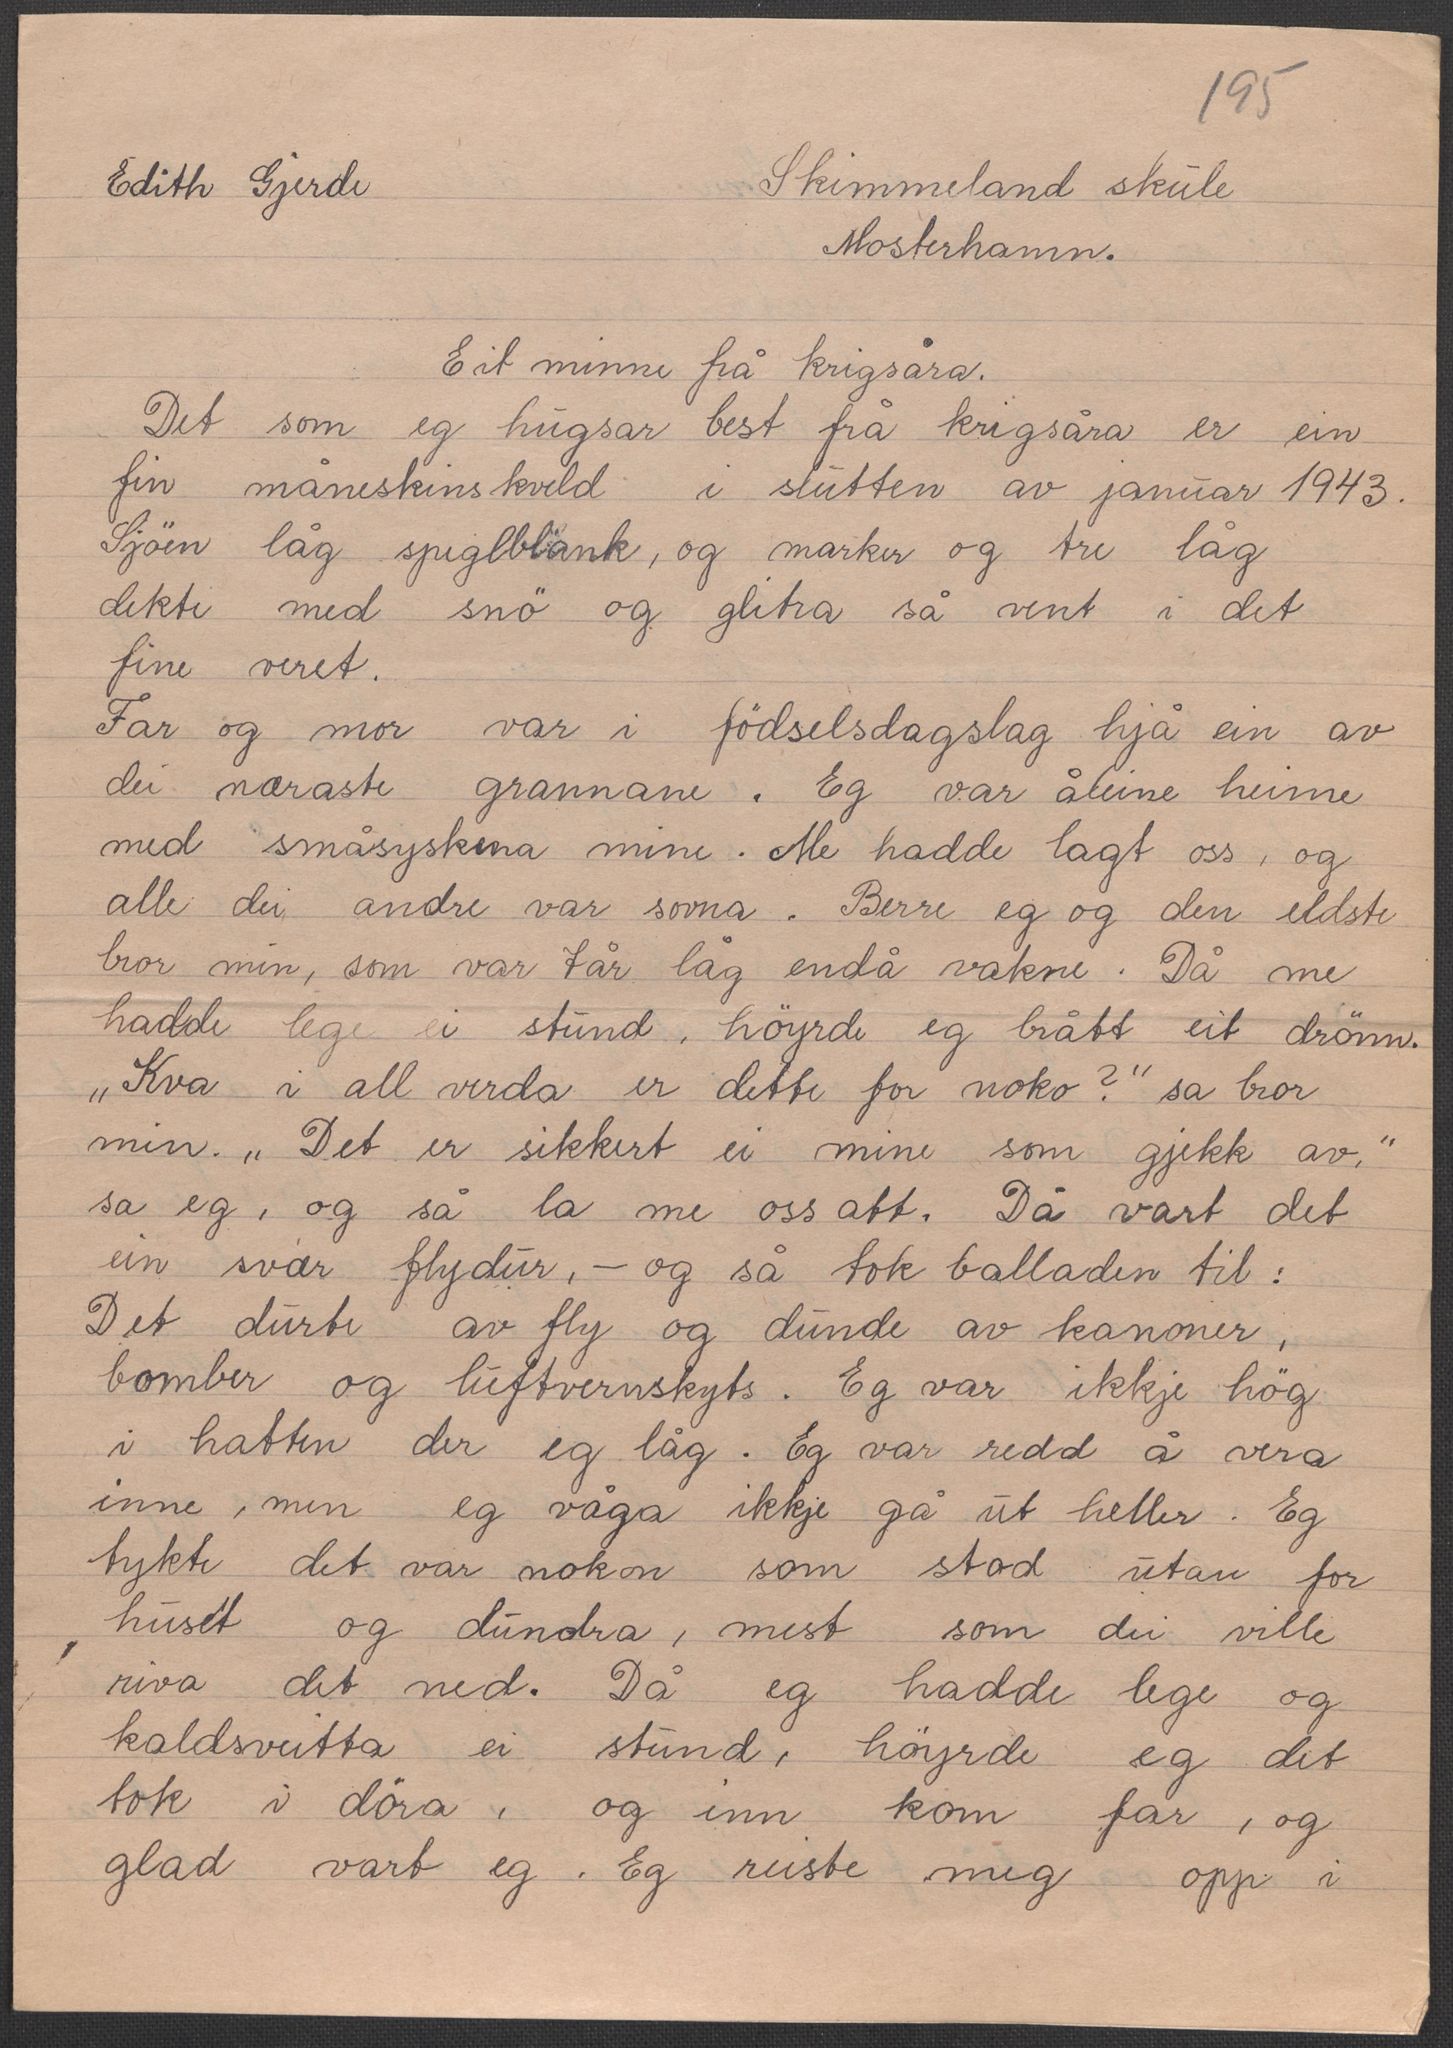 195
Edith Gjerde
Skimmeland skule
Mosterhamn.
Eit minne frå krigsåra.
Det som eg hugsar best frå krigsåra er ein
fin måneskinskveld i slutten av januar 1943.
Sjöen låg speglblank, og marker og tre låg
dekte med snö og glitra så vent i det
fine veret.
Far og mor var i födselsdagslag hjå ein av
dei næraste grannane. Eg var åleine heime
med småsyskena mine. Me hadde lagt oss, og
alle dei andre var sovna. Berre eg og den eldste
bror min, som var 7 år låg endå vakne. Då me
hadde lege ei stund, höyrde eg brått eit drönn.
„Kva i all verda er dette for noko?" sa bror
min. „Det er sikkert ei mine som gjekk av,"
sa eg, og så la me oss att. Då vart det
ein svær flydur, – og så tok balladen til:
Det durte av fly og dunde av kanoner,
bomber og luftvernskyts. Eg var ikkje hög
i hatten der eg låg. Eg var redd å vera
inne, men eg våga ikkje gå ut heller. Eg
tykte det var nokon som stod utan for
huset og dundra, mest som dei ville
riva det ned. Då eg hadde lege og
kaldsveitta ei stund, höyrde eg det
tok i döra, og inn kom far, og
glad vart eg. Eg reiste meg opp i